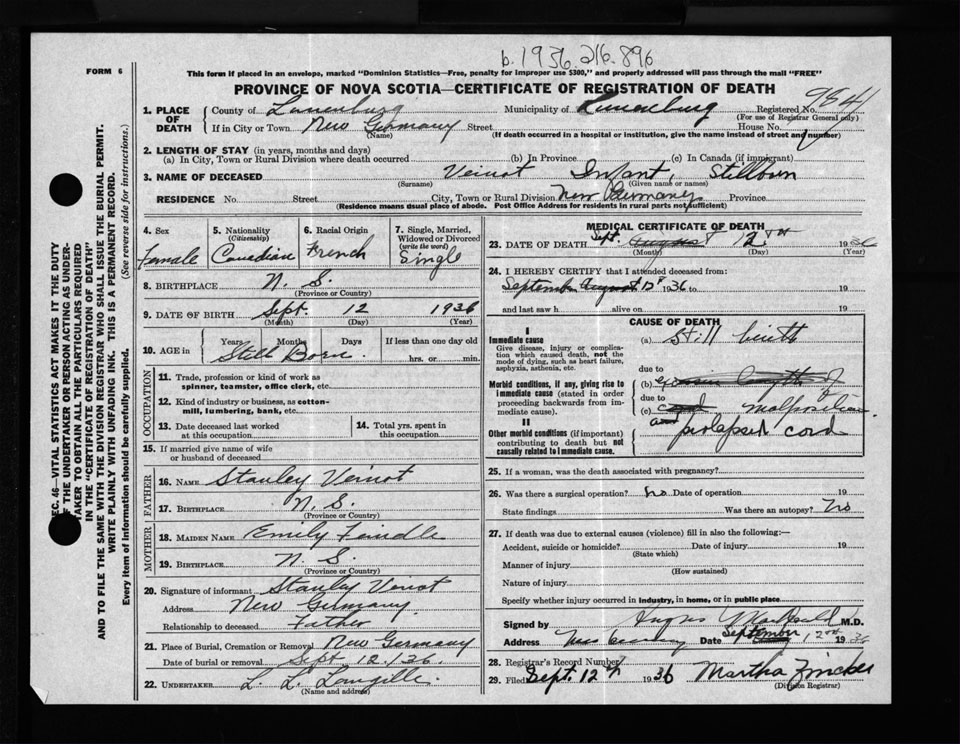 b. 1936. 216. 896
FORM 6
This form if placed in an envelope, marked "Dominion Statistics—Free, penalty for improper use $300," and properly addressed will pass through the mail "FREE"
PROVINCE OF NOVA SCOTIA—CERTIFICATE OF REGISTRATION OF DEATH
1. PLACE OF DEATH County of Lunenburg Municipality of Lunenburg Registered No. 9841
(For use of Registrar General only)
If in City or Town New Germany Street House No.
(Name) (If death occurred in a hospital or institution, give the name instead of street and number)
2. LENGTH OF STAY (in years, months and days)
(a) In City, Town or Rural Division where death occurred (b) In Province (c) In Canada (if immigrant)
3. NAME OF DECEASED Veinot Infant, Stillborn
(Surname) (Given name or names)
RESIDENCE No. Street City, Town or Rural Division New Germany Province
(Residence means usual place of abode. Post Office Address for residents in rural parts not sufficient)
4. Sex 5. Nationality (Citizenship) 6. Racial Origin 7. Single, Married, Widowed or Divorced (write the word)
Female Canadian French Single
8. BIRTHPLACE N. S.
(Province or Country)
9. DATE OF BIRTH Sept. 12 1936
(Month) (Day) (Year)
10. AGE in Years Months Days If less than one day old
Still Born hrs. or min.
OCCUPATION
11. Trade, profession or kind of work as spinner, teamster, office clerk, etc.
12. Kind of industry or business, as cotton-mill, lumbering, bank, etc.
13. Date deceased last worked at this occupation 14. Total yrs. spent in this occupation
15. If married give name of wife or husband of deceased
FATHER
16. NAME Stanley Veinot
17. BIRTHPLACE N. S.
(Province or Country)
MOTHER
18. MAIDEN NAME Emily
19. BIRTHPLACE N. S.
(Province or Country)
20. Signature of informant Stanley Veinot
Address New Germany
Relationship to deceased Father
21. Place of Burial, Cremation or Removal New Germany
Date of burial or removal Sept 12/36.
22. UNDERTAKER L. L. Langille.
(Name and address)
MEDICAL CERTIFICATE OF DEATH
23. DATE OF DEATH Sept. August 12th 1936
(Month) (Day) (Year)
24. I HEREBY CERTIFY that I attended deceased from:
September August 12th 1936 to 19
and last saw h alive on 19
CAUSE OF DEATH
I
Immediate cause
Give disease, injury or complication which caused death, not the mode of dying, such as heart failure, asphyxia, asthenia, etc.
(a) Still birth
due to
Morbid conditions, if any, giving rise to immediate cause (stated in order proceeding backwards from immediate cause).
(b) of
due to
(c) cord malposition
and prolapsed cord
II
Other morbid conditions (if important) contributing to death but not causally related to immediate cause.
25. If a woman, was the death associated with pregnancy?
26. Was there a surgical operation? No Date of operation 19
State findings Was there an autopsy? No
27. If death was due to external causes (violence) fill in also the following:—
Accident, suicide or homicide? Date of injury 19
(State which)
Manner of injury
(How sustained)
Nature of injury
Specify whether injury occurred in industry, in home, or in public place
Signed by Angus M.D.
Address New Germany Date September 12th 1936
28. Registrar's Record Number 7
29. Filed Sept. 12th 1936 Martha Zincker
(Division Registrar)
SEC. 46—VITAL STATISTICS ACT MAKES IT THE DUTY
OF THE UNDERTAKER OR PERSON ACTING AS UNDER-
TAKER TO OBTAIN ALL THE PARTICULARS REQUIRED
IN THE "CERTIFICATE OF REGISTRATION OF DEATH"
AND TO FILE THE SAME WITH THE DIVISION REGISTRAR WHO SHALL ISSUE THE BURIAL PERMIT.
WRITE PLAINLY WITH UNFADING INK. THIS IS A PERMANENT RECORD.
Every item of information should be carefully supplied. (See reverse side for instructions.)